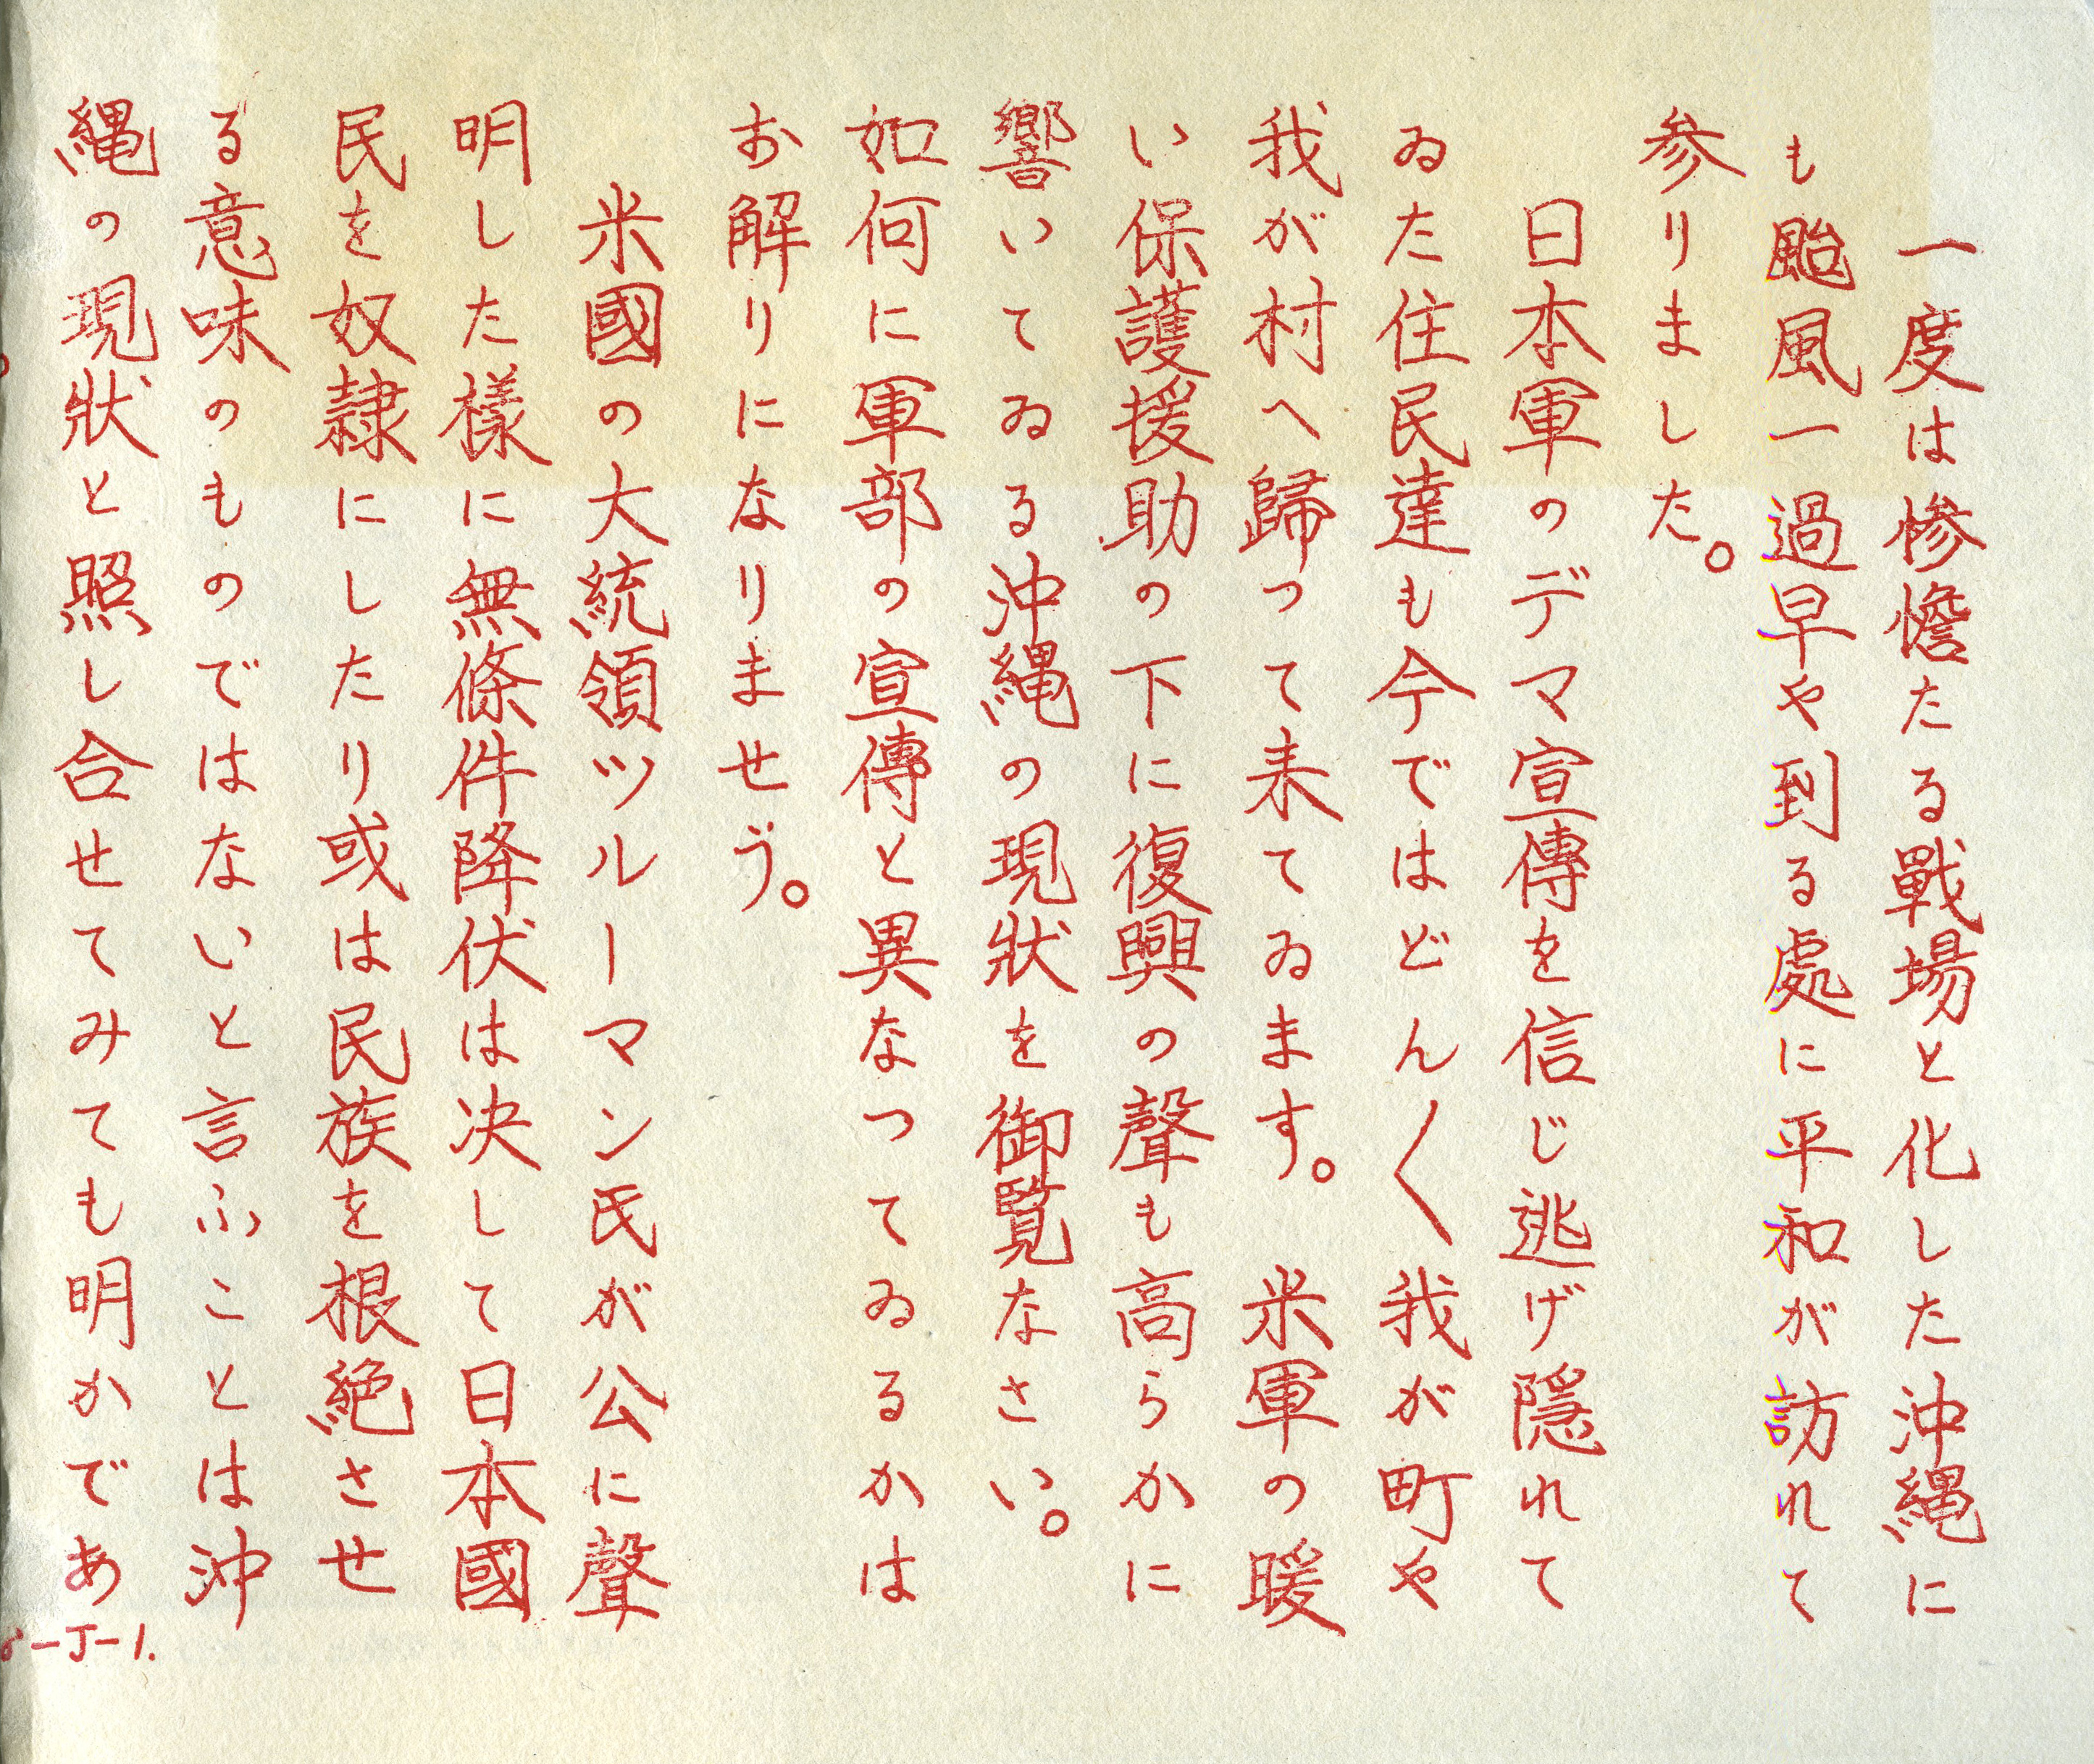 一度は惨憺たる戰場と化した沖縄に
も颱風一過早や到る處に平和が訪れて
参りました。
日本軍のデマ宣傳を信じ逃げ隠れて
ゐた住民達も今ではどん〱我が町や
我が村へ歸って来てゐます。米軍の暖
い保護援助の下に復興の聲も高らかに
響いてゐる沖縄の現狀を御覧なさい。
如何に軍部の宣傳と異なつてゐるかは
お解りになりませう。
米國の大統領ツルーマン氏が公に聲
明した様に無條件降伏は决して日本國
民を奴隷にしたり或は民族を根絶させ
る意味のものではないと言ふことは沖
縄の現狀と照し合せてみても明かであ
-J-1.